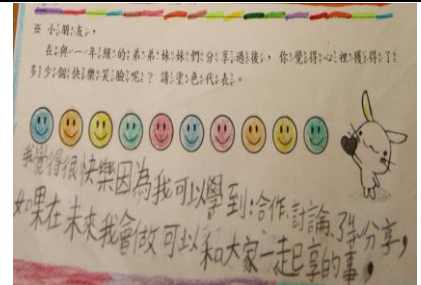 ※ 小朋友，
在與一年級的弟弟妹妹們分享過後，你覺得心裡獲得了
多少個快樂笑臉呢？請塗色代表。
我覺得很快樂因為我可以學到:合作、討論、分享，
如果在未來我會做可以和大家一起享的事，